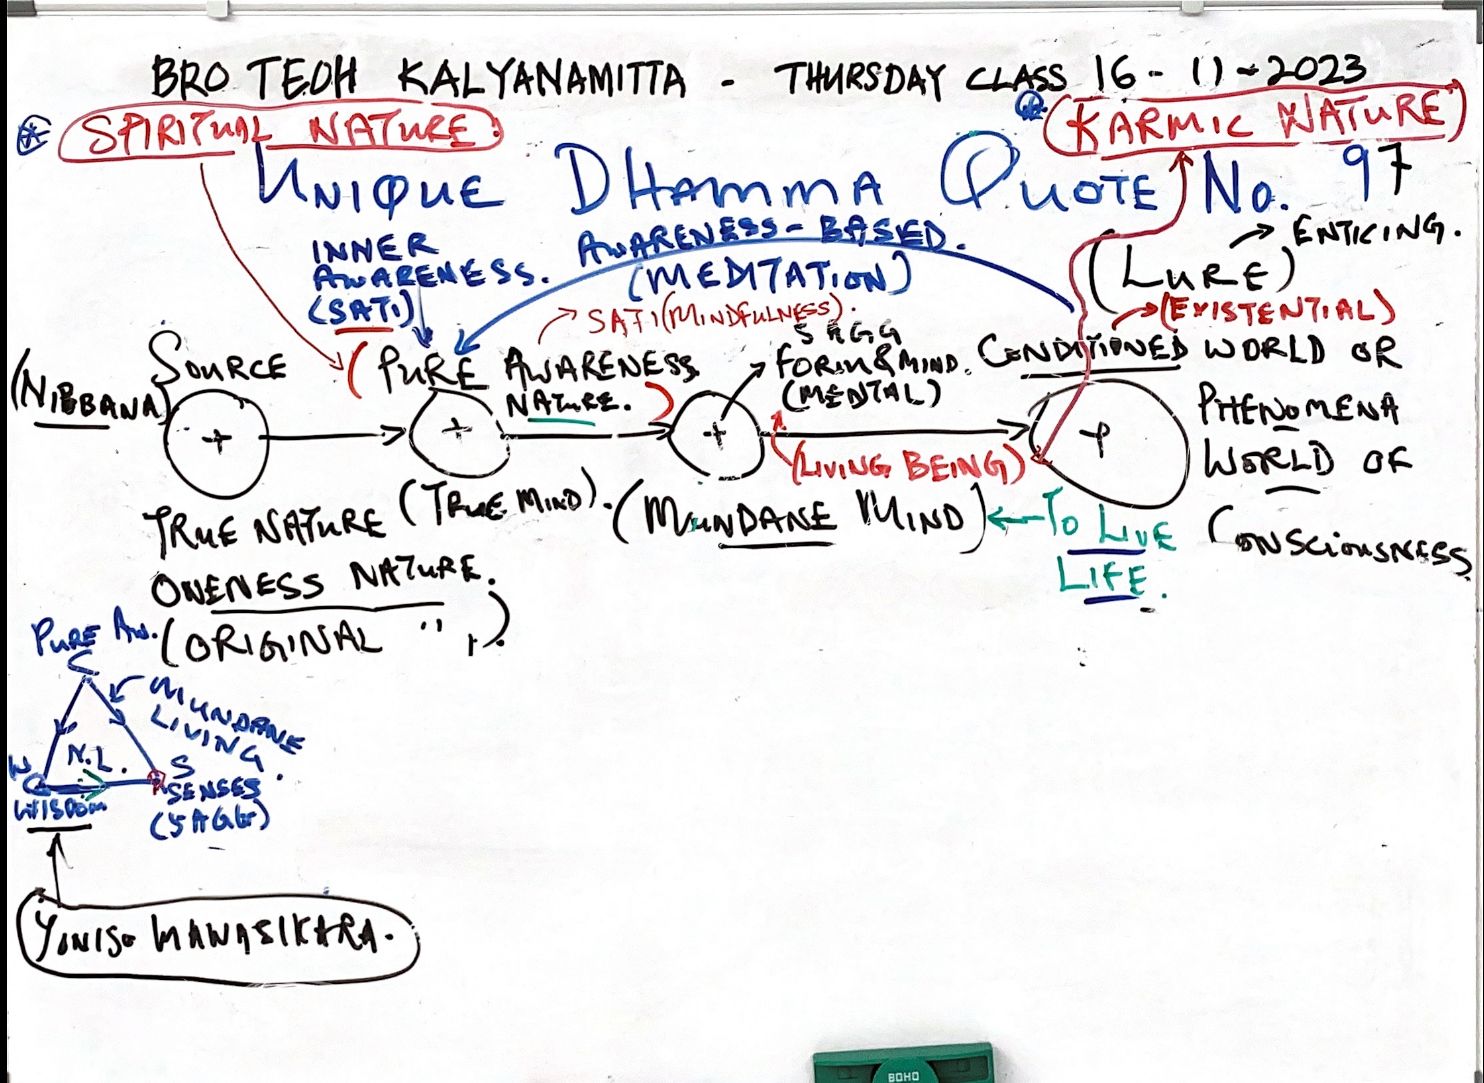 BRO TEOH KALYANAMITTA - THURSDAY CLASS 16-11-2023
SPIRITUAL NATURE:
KARMIC NATURE
UNIQUE DHAMMA QUOTE No. 97
INNER
AWARENESS.
(SATI)
AWARENESS-BASED.
(MEDITATION)
→ ENTICING.
(LURE)
→ (EXISTENTIAL)
→ SATI (MINDFULNESS).
5 AGG
FORM & MIND.
(MENTAL)
(NIBBANA)
SOURCE
(PURE AWARENESS
NATURE.)
CONDITIONED WORLD OR
PHENOMENA
WORLD OF
CONSCIOUSNESS
(LIVING BEING)
TRUE NATURE
(TRUE MIND).
(MUNDANE MIND)
← TO LIVE
LIFE.
ONENESS NATURE.
(ORIGINAL " ").
PURE AW.
C
MUNDANE
LIVING.
N.L.
W
WISDOM
S
SENSES
(5 AGG)
YONISO MANASIKARA.
BOHO